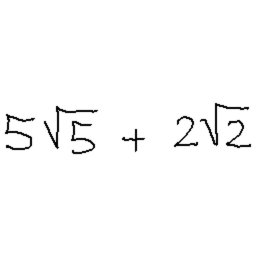 5√5 + 2√2